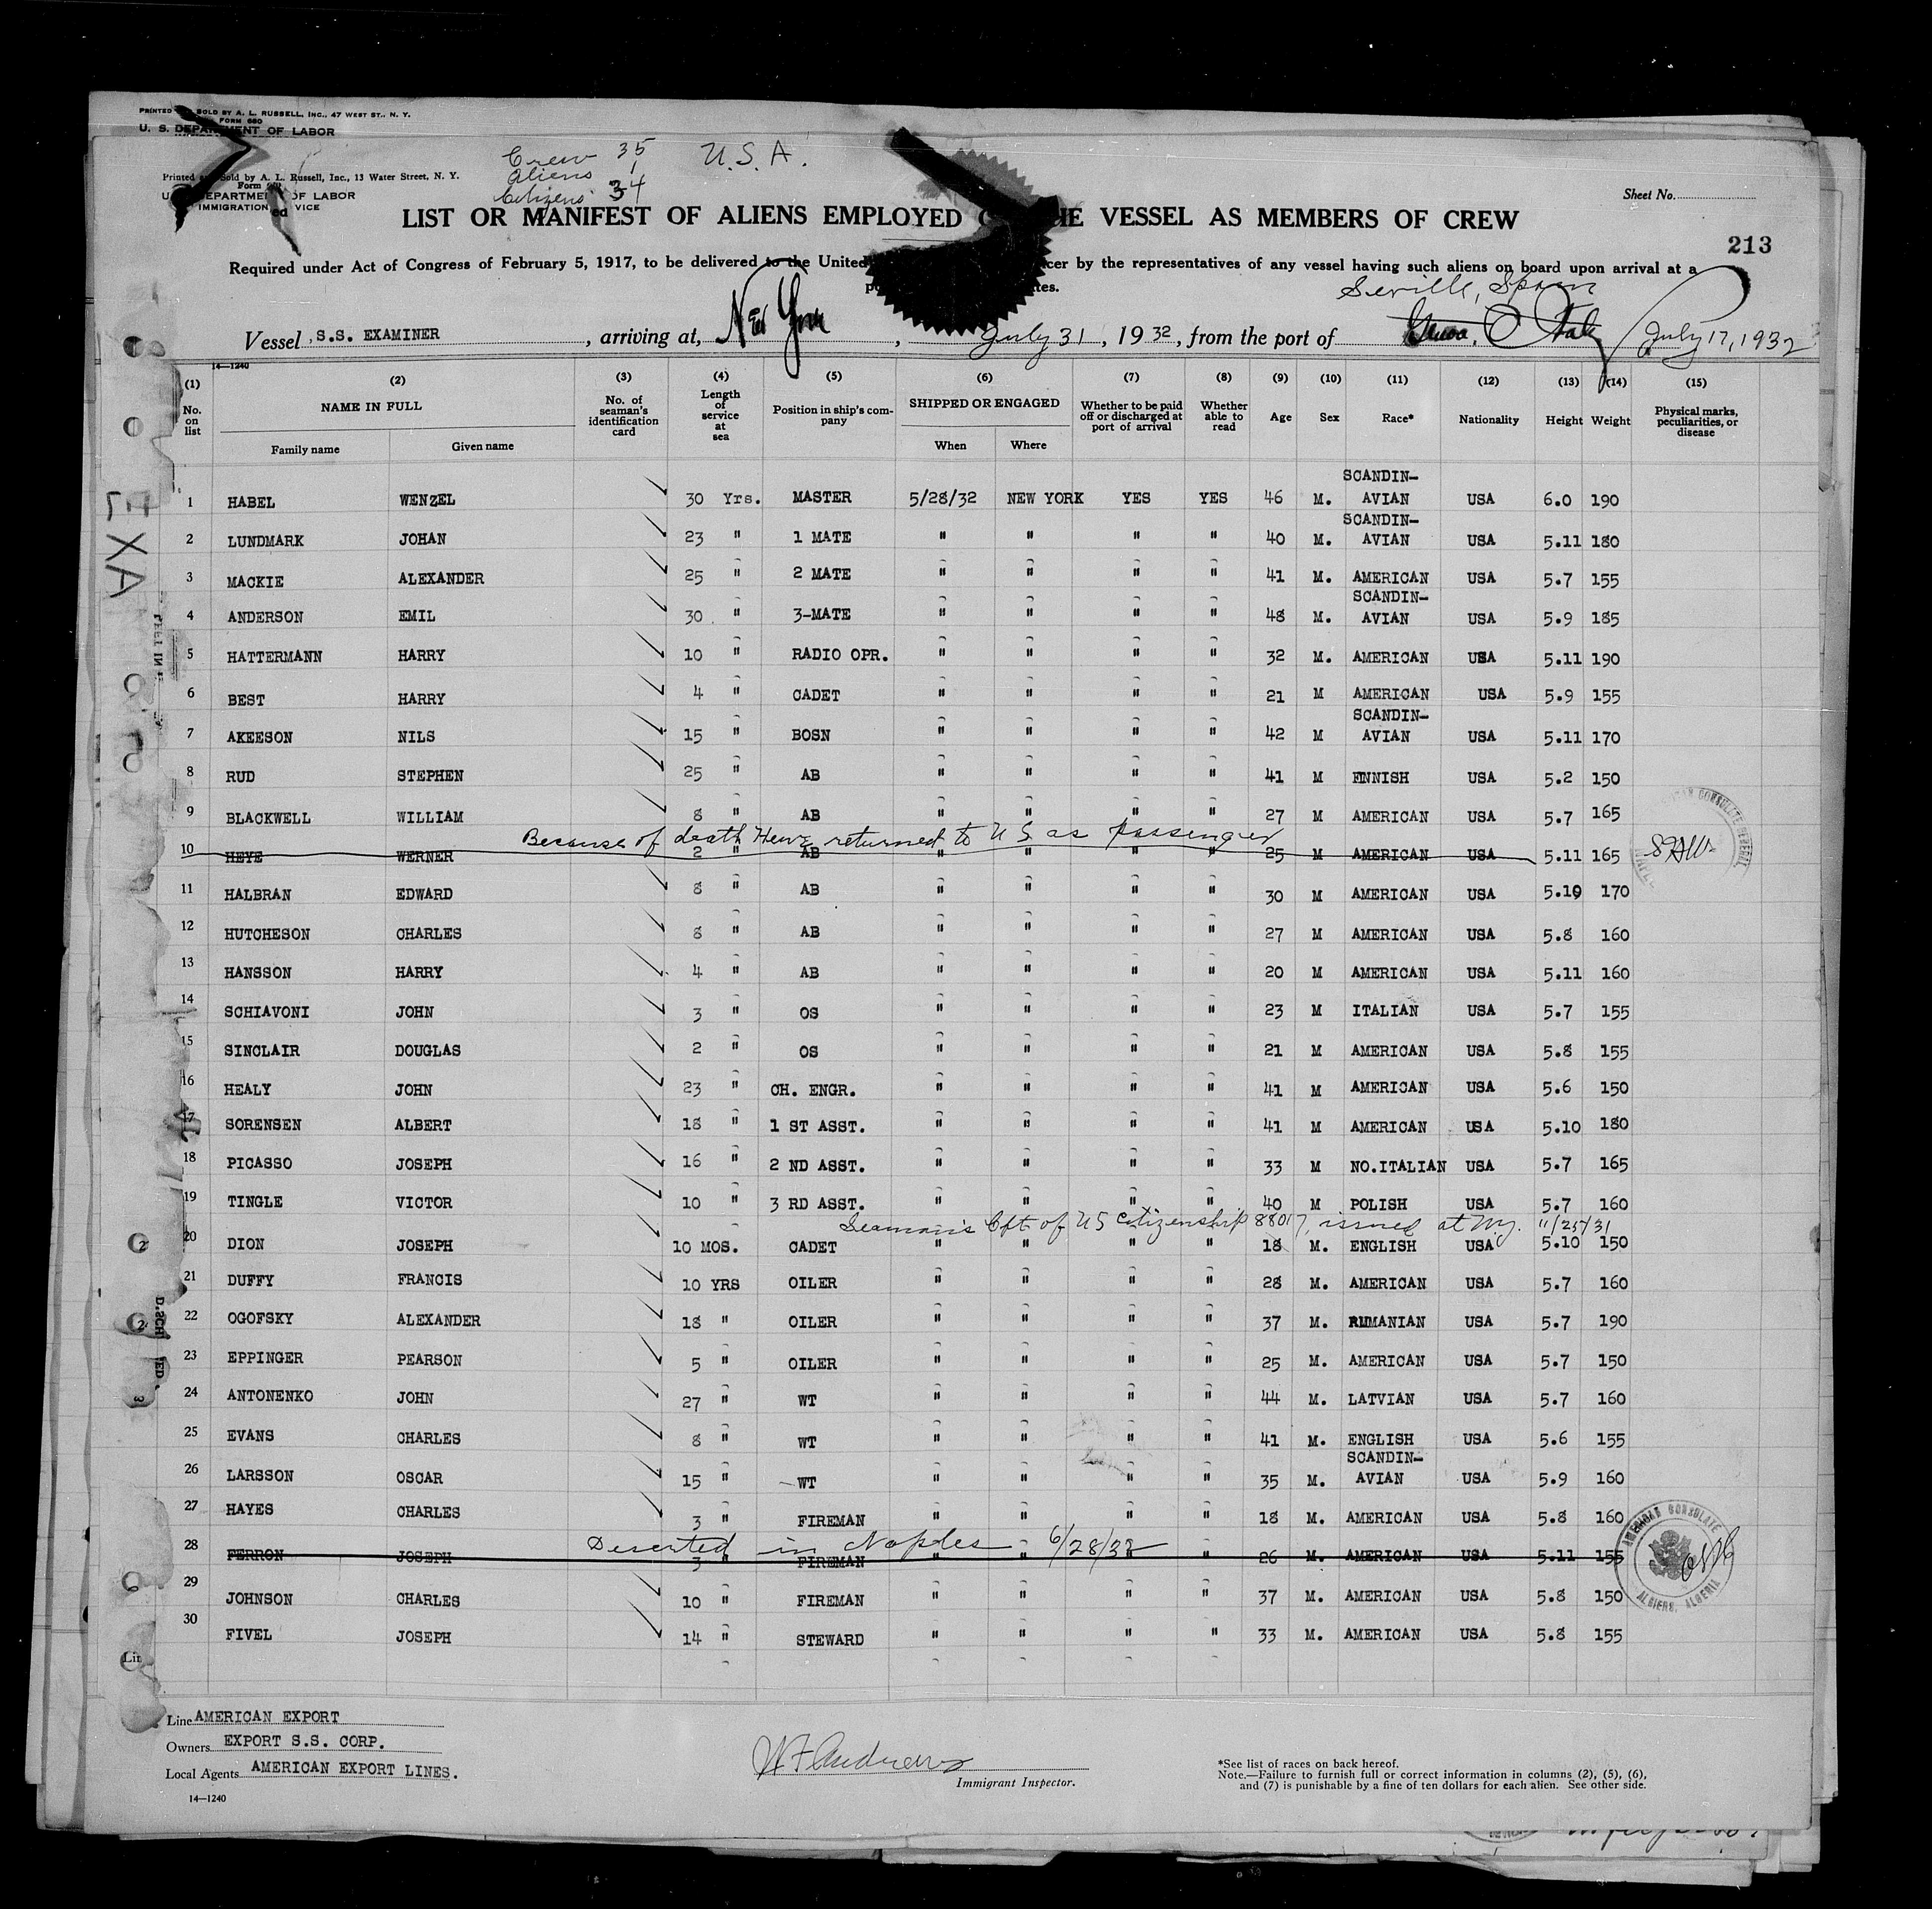 PRINTED SOLD BY A. L. RUSSELL, INC., 47 WEST ST., N. Y.
FORM 680
U. S. DEPARTMENT OF LABOR
Crew 35 U.S.A.
Aliens 1
Citizens 34
Printed and Sold by A. L. Russell, Inc., 13 Water Street, N. Y.
Form
DEPARTMENT OF LABOR
IMMIGRATION SERVICE
Sheet No.
LIST OR MANIFEST OF ALIENS EMPLOYED ON THE VESSEL AS MEMBERS OF CREW
213
Required under Act of Congress of February 5, 1917, to be delivered to the United cer by the representatives of any vessel having such aliens on board upon arrival at a
tes.
Seville, Spain
Vessel S.S. EXAMINER, arriving at, New York, July 31, 1932, from the port of Genoa, Italy July 17, 1932
14—1240
(1) (2) (3) (4) (5) (6) (7) (8) (9) (10) (11) (12) (13) (14) (15)
No. on list NAME IN FULL Family name Given name No. of seaman's identification card Length of service at sea Position in ship's company SHIPPED OR ENGAGED When Where Whether to be paid off or discharged at port of arrival Whether able to read Age Sex Race* Nationality Height Weight Physical marks, peculiarities, or disease
1 HABEL WENZEL 30 Yrs. MASTER 5/28/32 NEW YORK YES YES 46 M. SCANDIN-AVIAN USA 6.0 190
2 LUNDMARK JOHAN 23 " 1 MATE " " " " 40 M. SCANDIN-AVIAN USA 5.11 180
3 MACKIE ALEXANDER 25 " 2 MATE " " " " 41 M. AMERICAN USA 5.7 155
4 ANDERSON EMIL 30 " 3-MATE " " " " 48 M. SCANDIN-AVIAN USA 5.9 185
5 HATTERMANN HARRY 10 " RADIO OPR. " " " " 32 M. AMERICAN USA 5.11 190
6 BEST HARRY 4 " CADET " " " " 21 M AMERICAN USA 5.9 155
7 AKEESON NILS 15 " BOSN " " " " 42 M SCANDIN-AVIAN USA 5.11 170
8 RUD STEPHEN 25 " AB " " " " 41 M FINNISH USA 5.2 150
9 BLACKWELL WILLIAM 8 " AB " " " " 27 M AMERICAN USA 5.7 165
Because of death Heye returned to U S as passenger
10 HEYE WERNER 2 " AB " " " " 25 M AMERICAN USA 5.11 165
11 HALBRAN EDWARD 8 " AB " " " " 30 M AMERICAN USA 5.19 170
12 HUTCHESON CHARLES 8 " AB " " " " 27 M AMERICAN USA 5.8 160
13 HANSSON HARRY 4 " AB " " " " 20 M AMERICAN USA 5.11 160
14 SCHIAVONI JOHN 3 " OS " " " " 23 M ITALIAN USA 5.7 155
15 SINCLAIR DOUGLAS 2 " OS " " " " 21 M AMERICAN USA 5.8 155
16 HEALY JOHN 23 " CH. ENGR. " " " " 41 M AMERICAN USA 5.6 150
17 SORENSEN ALBERT 18 " 1 ST ASST. " " " " 41 M AMERICAN USA 5.10 180
18 PICASSO JOSEPH 16 " 2 ND ASST. " " " " 33 M NO.ITALIAN USA 5.7 165
19 TINGLE VICTOR 10 " 3 RD ASST. " " " " 40 M POLISH USA 5.7 160
Seaman's Cft of US Citizenship 88017, issued at N.Y. 11/25/31
20 DION JOSEPH 10 MOS. CADET " " " " 18 M. ENGLISH USA 5.10 150
21 DUFFY FRANCIS 10 YRS OILER " " " " 28 M. AMERICAN USA 5.7 160
22 OGOFSKY ALEXANDER 18 " OILER " " " " 37 M. RUMANIAN USA 5.7 190
23 EPPINGER PEARSON 5 " OILER " " " " 25 M. AMERICAN USA 5.7 150
24 ANTONENKO JOHN 27 " WT " " " " 44 M. LATVIAN USA 5.7 160
25 EVANS CHARLES 8 " WT " " " " 41 M. ENGLISH USA 5.6 155
26 LARSSON OSCAR 15 " WT " " " " 35 M. SCANDIN-AVIAN USA 5.9 160
27 HAYES CHARLES 3 " FIREMAN " " " " 18 M. AMERICAN USA 5.8 160
Deserted in Naples 6/28/32
28 FERRON JOSEPH 3 " FIREMAN " " " " 26 M. AMERICAN USA 5.11 155
AMERICAN CONSULATE ALGIERS, ALGERIA
29 JOHNSON CHARLES 10 " FIREMAN " " " " 37 M. AMERICAN USA 5.8 150
30 FIVEL JOSEPH 14 " STEWARD " " " " 33 M. AMERICAN USA 5.8 155
Line AMERICAN EXPORT
Owners EXPORT S.S. CORP.
Local Agents AMERICAN EXPORT LINES.
14—1240
Immigrant Inspector.
*See list of races on back hereof.
Note.—Failure to furnish full or correct information in columns (2), (5), (6),
and (7) is punishable by a fine of ten dollars for each alien. See other side.
EXA